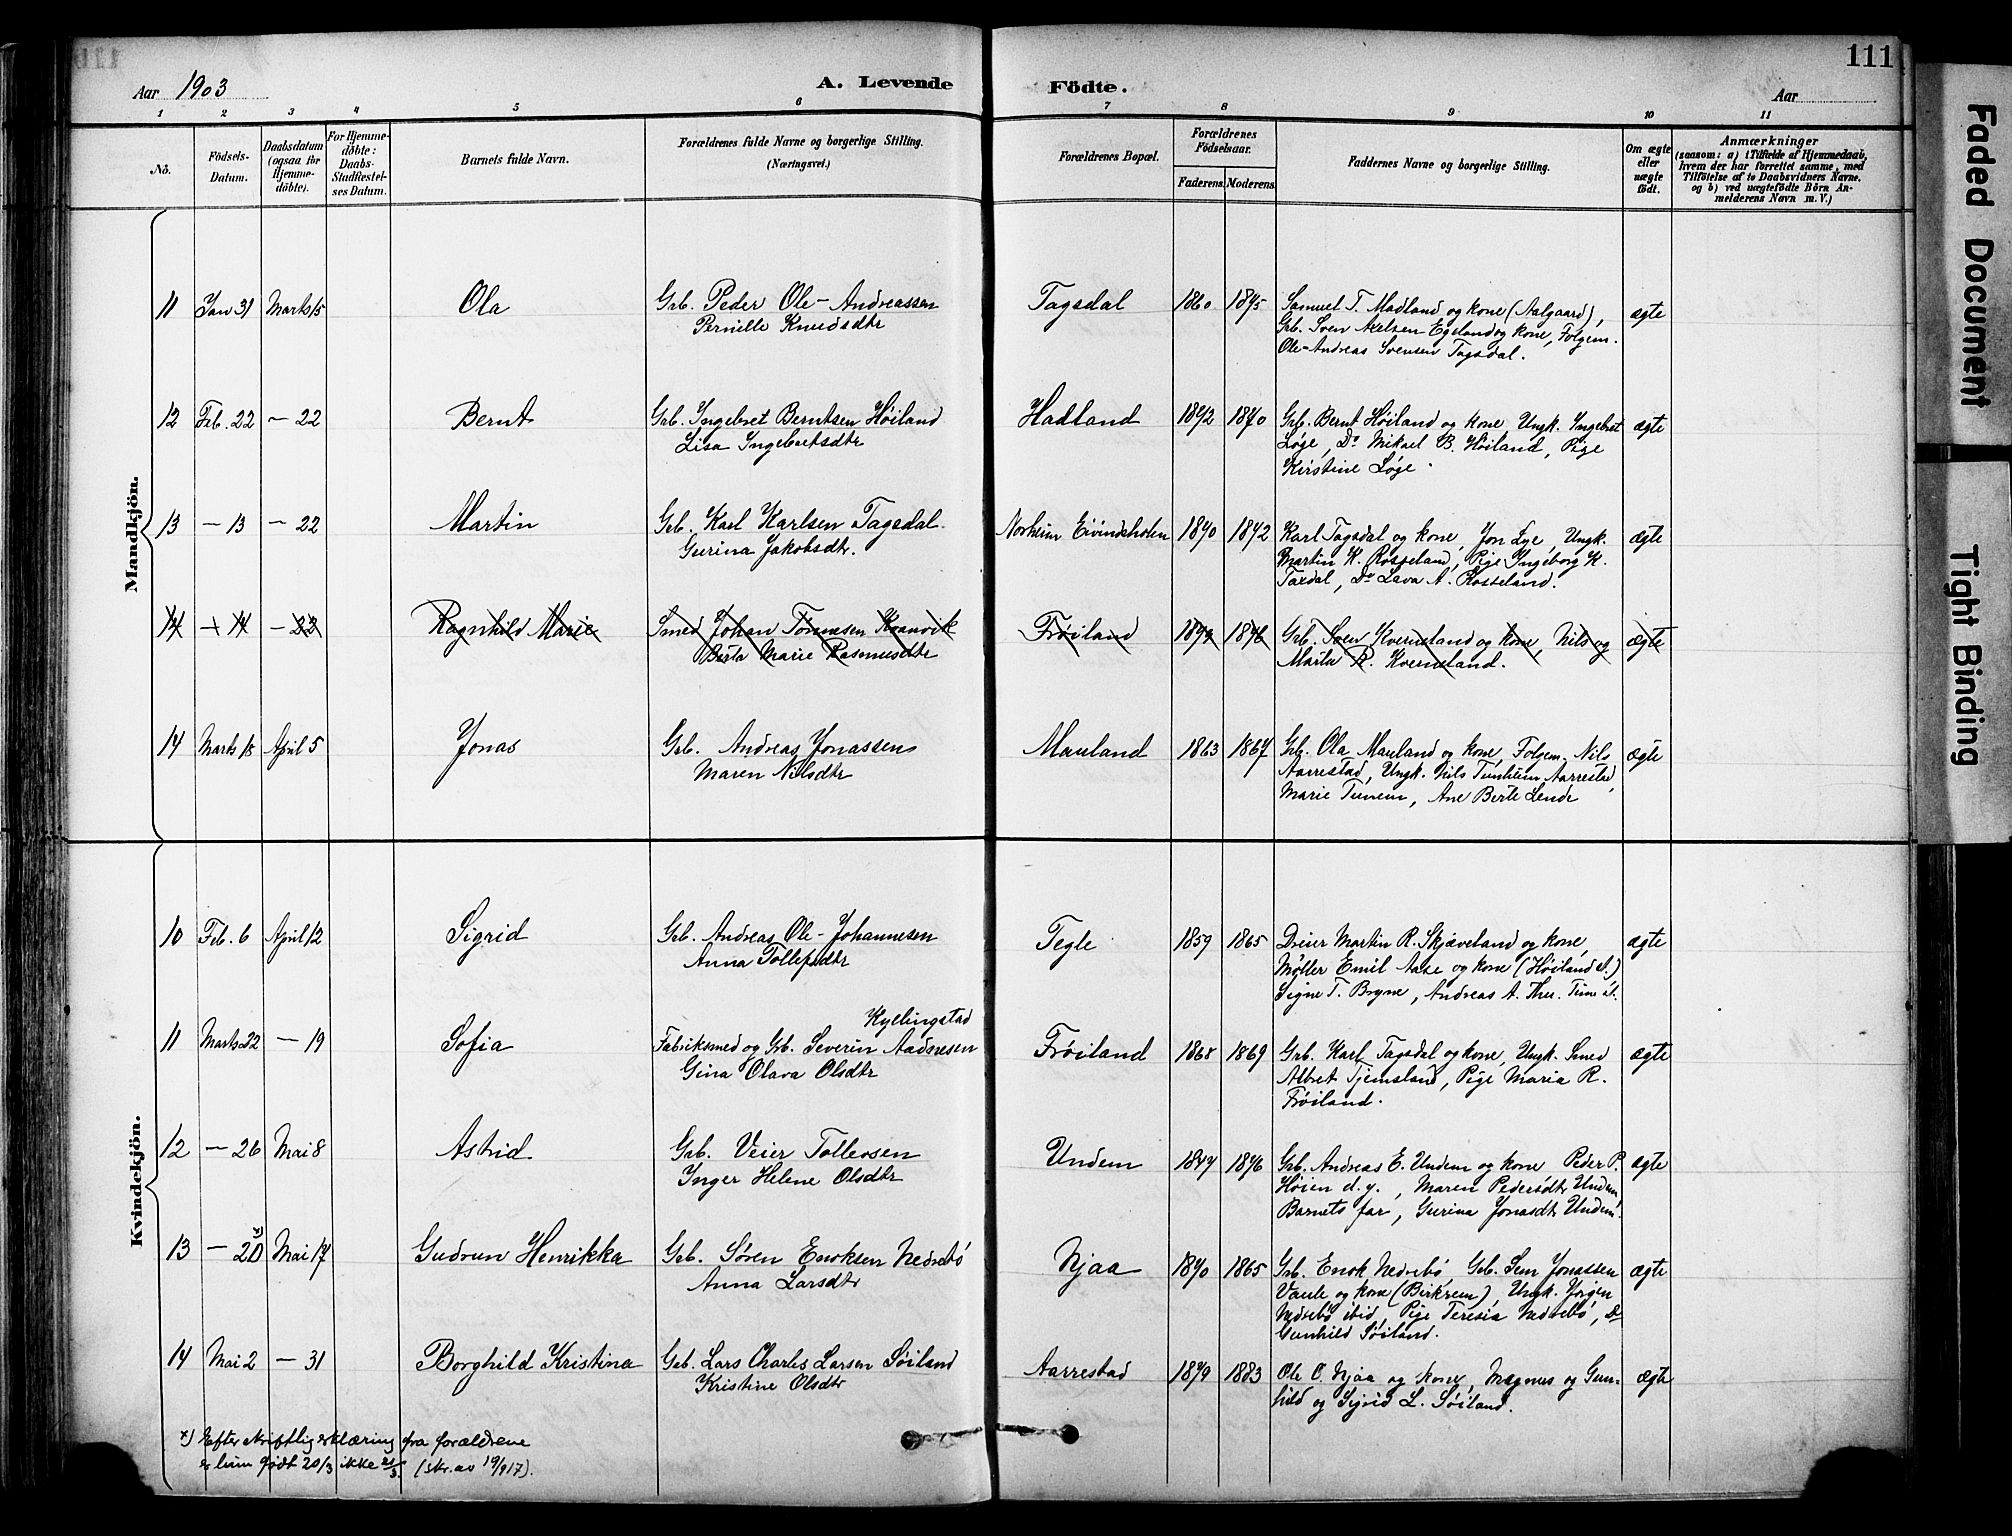 Aar 1903
A. Levende Födte.
Aar
111
1 2 3 4 5 6 7 8 9 10 11
No.
Födsels-Datum.
Daabsdatum (ogsaa for Hjemmedöbte).
For Hjemmedöbte: Daabs-Stadfæstelses Datum.
Barnets fulde Navn.
Forældrenes fulde Navne og borgerlige Stilling. (Næringsvei.)
Forældrenes Bopæl.
Forældrenes Födselsaar.
Faderens. Moderens.
Faddernes Navne og borgerlige Stilling.
Om ægte eller uægte födt.
Anmærkninger
(saasom: a) i Tilfælde af Hjemmedaab, hvem der har forrettet samme, med Tilföielse af to Daabsvidners Navne. og b) ved uægtefödte Börn Anmelderens Navn m. V.)
Mandkjön.
11 Jan 31 Marts 15 Ola Grb. Peder Ole-Andreassen Tagsdal 1860 1875 Samuel T. Madland og kone (Aalgaard), ægte
Pernille Knudsdtr Grb. Sven Axelsen Egeland og kone, Folgem.
Ole-Andreas Svensen Tagsdal.
12 Feb. 22 - 22 Bernt Grb. Ingebret Berntsen Høiland Hadland 1872 1870 Grb. Bernt Høiland og kone, Ungk. Ingebret ægte
Lisa Ingebretsdtr Løge, Do Mikael B. Høiland, Pige
Kirstine Løge.
13 - 13 - 22 Martin Grb. Karl Karlsen Tagsdal Norheim Eivindsholen 1870 1872 Karl Tagsdal og kone, Jon Lye, Ungk. ægte
Gurina Jakobsdtr. Martin K. Rosseland, Pige Ingeborg K.
Taxdal, Do Lava A. Rosseland.
14 - 14 - 22 Ragnhild Marie Smed Johan Tønnesen Kranvik Frøiland 1872 1876 Grb. Sven Kverneland og kone, Nils og ægte
Berta Marie Rasmusdtr Marta R. Kverneland.
14 Marts 18 April 5 Jonas Grb. Andreas Jonassen Mauland 1863 1867 Grb. Ola Mauland og kone, Folgem. Nils ægte
Maren Nilsdtr Aarrestad, Ungk. Nils Tunheim Aarrestad,
Marie Tunem, Ane Berte Lende
Kvindekjön.
10 Feb. 6 April 12 Sigrid Grb. Andreas Ole-Johannesen Tegle 1859 1865 Dreier Martin R. Skjæveland og kone, ægte
Anna Tollefsdtr Møller Emil Aase og kone (Høiland st.)
Signe T. Bryne, Andreas A. Thu. Time st.
11 Marts 22 - 19 Sofia Kyllingstad
Fabriksmed og Grb. Severin Aadnesen Frøiland 1868 1869 Grb. Karl Tagsdal og kone, Ungk. Smed ægte
Gina Olava Olsdtr Albret Tjemsland, Pige Maria R.
Frøiland.
12 - 26 Mai 8 Astrid Grb. Veier Tollevsen Undem 1847 1876 Grb. Andreas E. Undem og kone Peder P. ægte
Inger Helene Olsdtr Høien d.y., Maren Pedersdtr Undem,
Barnets far, Gurina Jonasdtr Undem.
13 - 20 x) Mai 17 Gudrun Henrikka Grb. Søren Enoksen Nedrebö Njaa 1870 1865 Grb. Enok Nedrebö, Grb. Sem Jonassen ægte
Anna Larsdtr Vaule og kone (Birkrem), Ungk. Jörgen
Nedrebö ibid, Pige Teresia Nedrebö, Do
Gunhild Søiland.
14 Mai 2 - 31 Borghild Kristina Grb. Lars Charles Larsen Søiland Aarrestad 1879 1883 Ole O. Njaa og kone, Magnus og Gun- ægte
Kristine Olsdtr hild og Sigrid L. Søiland.
x) Efter skriftlig erklæring fra forældrene
er hun født 20/3 ikke 21/3. (skr. av 19/9 17).
Faded Document
Tight Binding